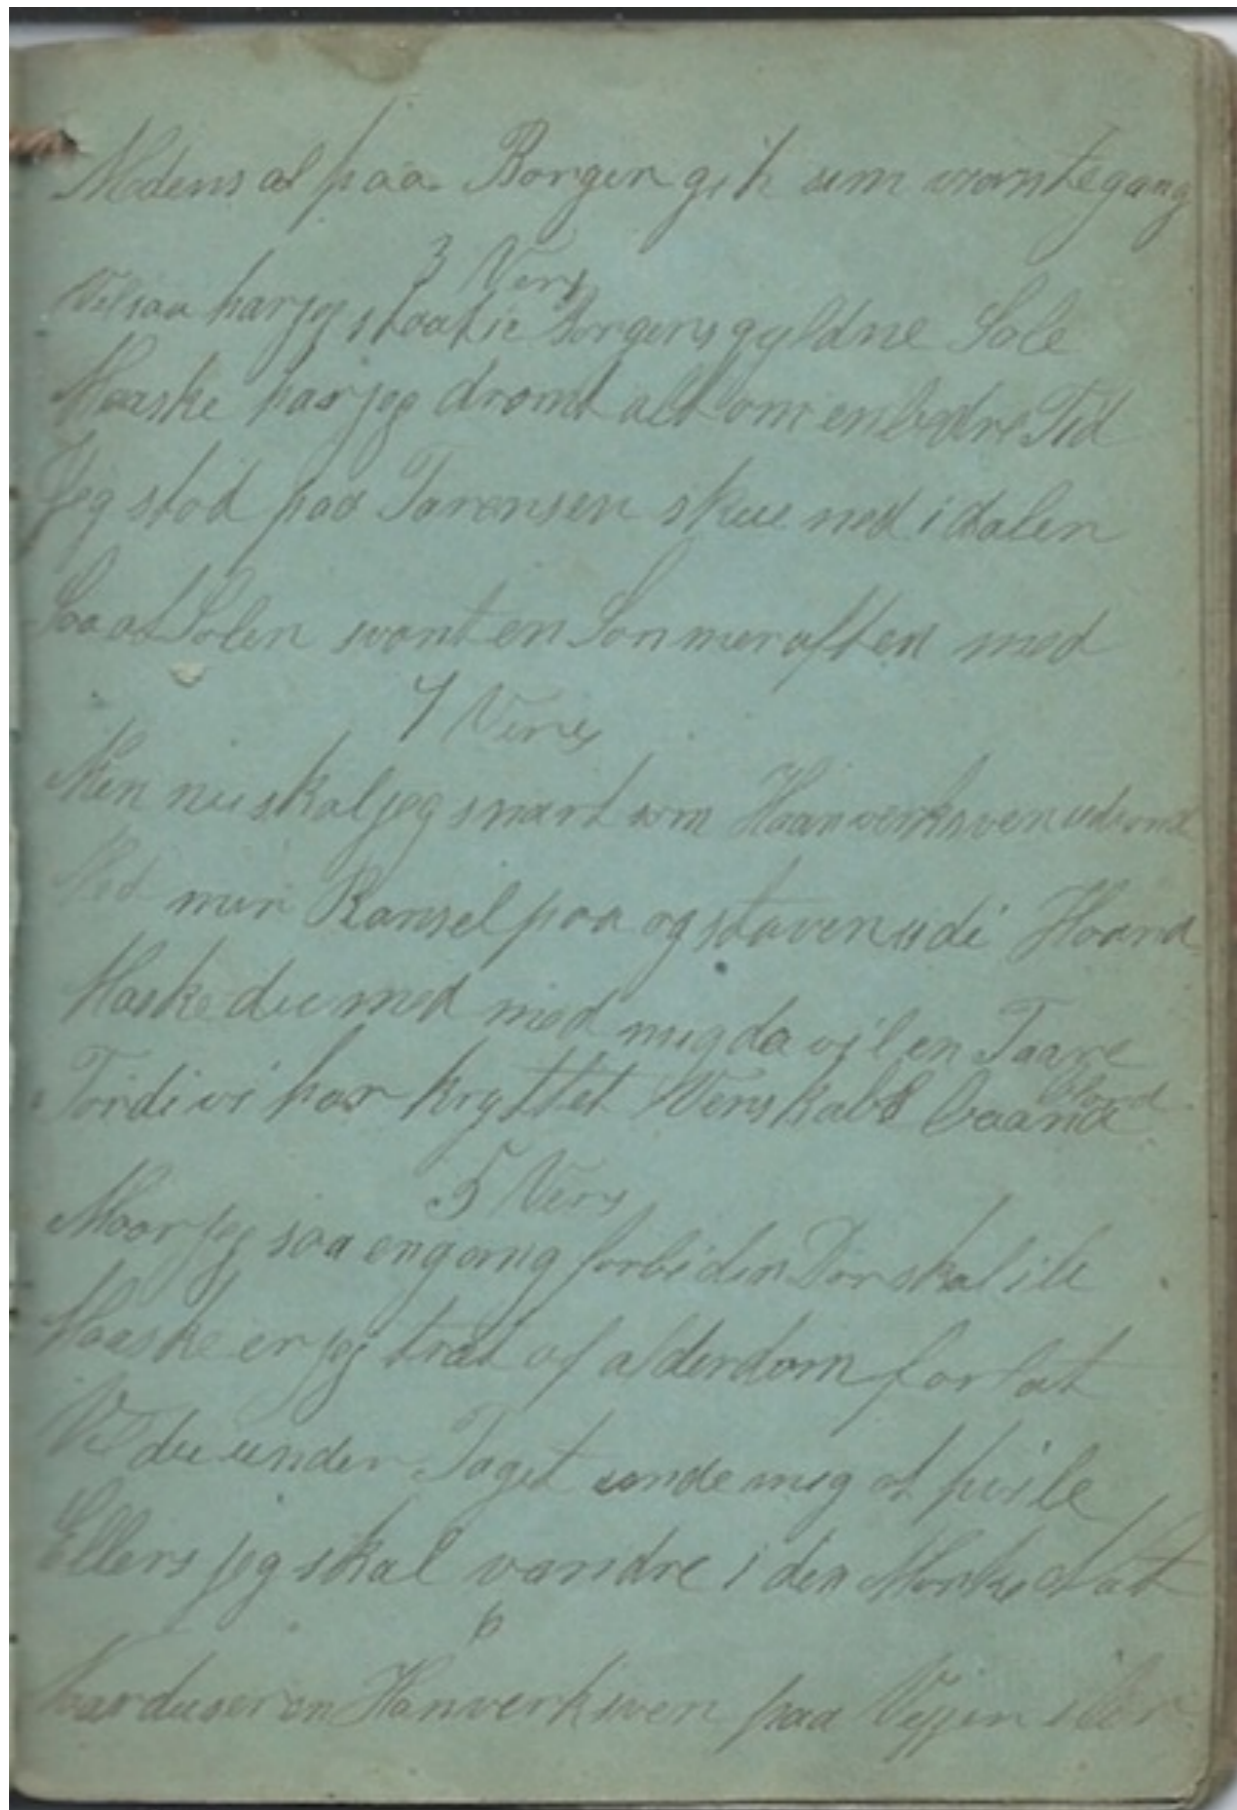 Medens al paa Borgen gik sim vrante gang
3 Vers
Vel saa har jeg staat ie Borgens gyldne Sale
Maaske har jeg drømt alt om en bedre Tid
Jeg stod paa Taronsen skue ned i dalen
Saa at Solen svant en Sonmeraften med
4 Vers
Men nu skal jeg snart som Haanverksven ud
Med min Ransel paa og staven udi Haand
Maske du med med mig da vil en Taare
Tordi vi har knyttet Venskabs baand
5 Vers
Naar jeg saa engang forbi din Dør skal ile
Maaske er jeg træt af alderdom forlat
Vil du under Taget unde mig at hvile
Ellers jeg skal vandre i den Mørke Nat
6
Naar du ser en Hanverksven paa Vejjen iler